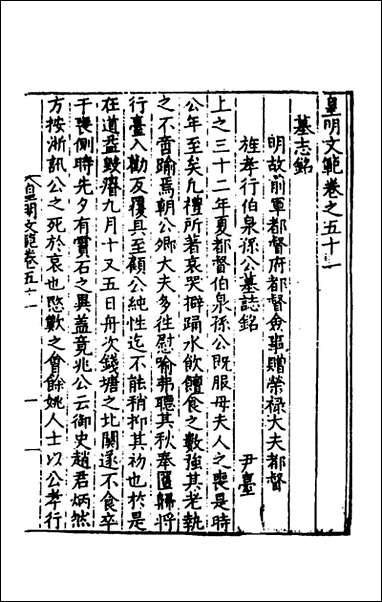 皇明文範卷之五十一
墓志銘
明故前軍都督府都督僉事贈榮祿大夫都督
旌孝行伯泉孫公墓誌銘 尹臺
上之三十二年夏都督伯泉孫公既服母夫人之喪是時
公年至矣凢禮所著哀哭擗踊水飲饘食之數強其老執
之不啻踰焉朝公卿大夫多徃慰喻弗聽其秋奉匶歸將
行臺入勸反覆具至顧公純性迄不能稍抑其初也於是
在道益毀瘠九月十又五日舟次錢塘之北関遂不食卒
于喪側時先夕有霣石之異蓋竟兆公云御史趙君炳然
方按浙訊公之死於哀也愍歎之會餘姚人士以公孝行
皇明文範卷五十一 一